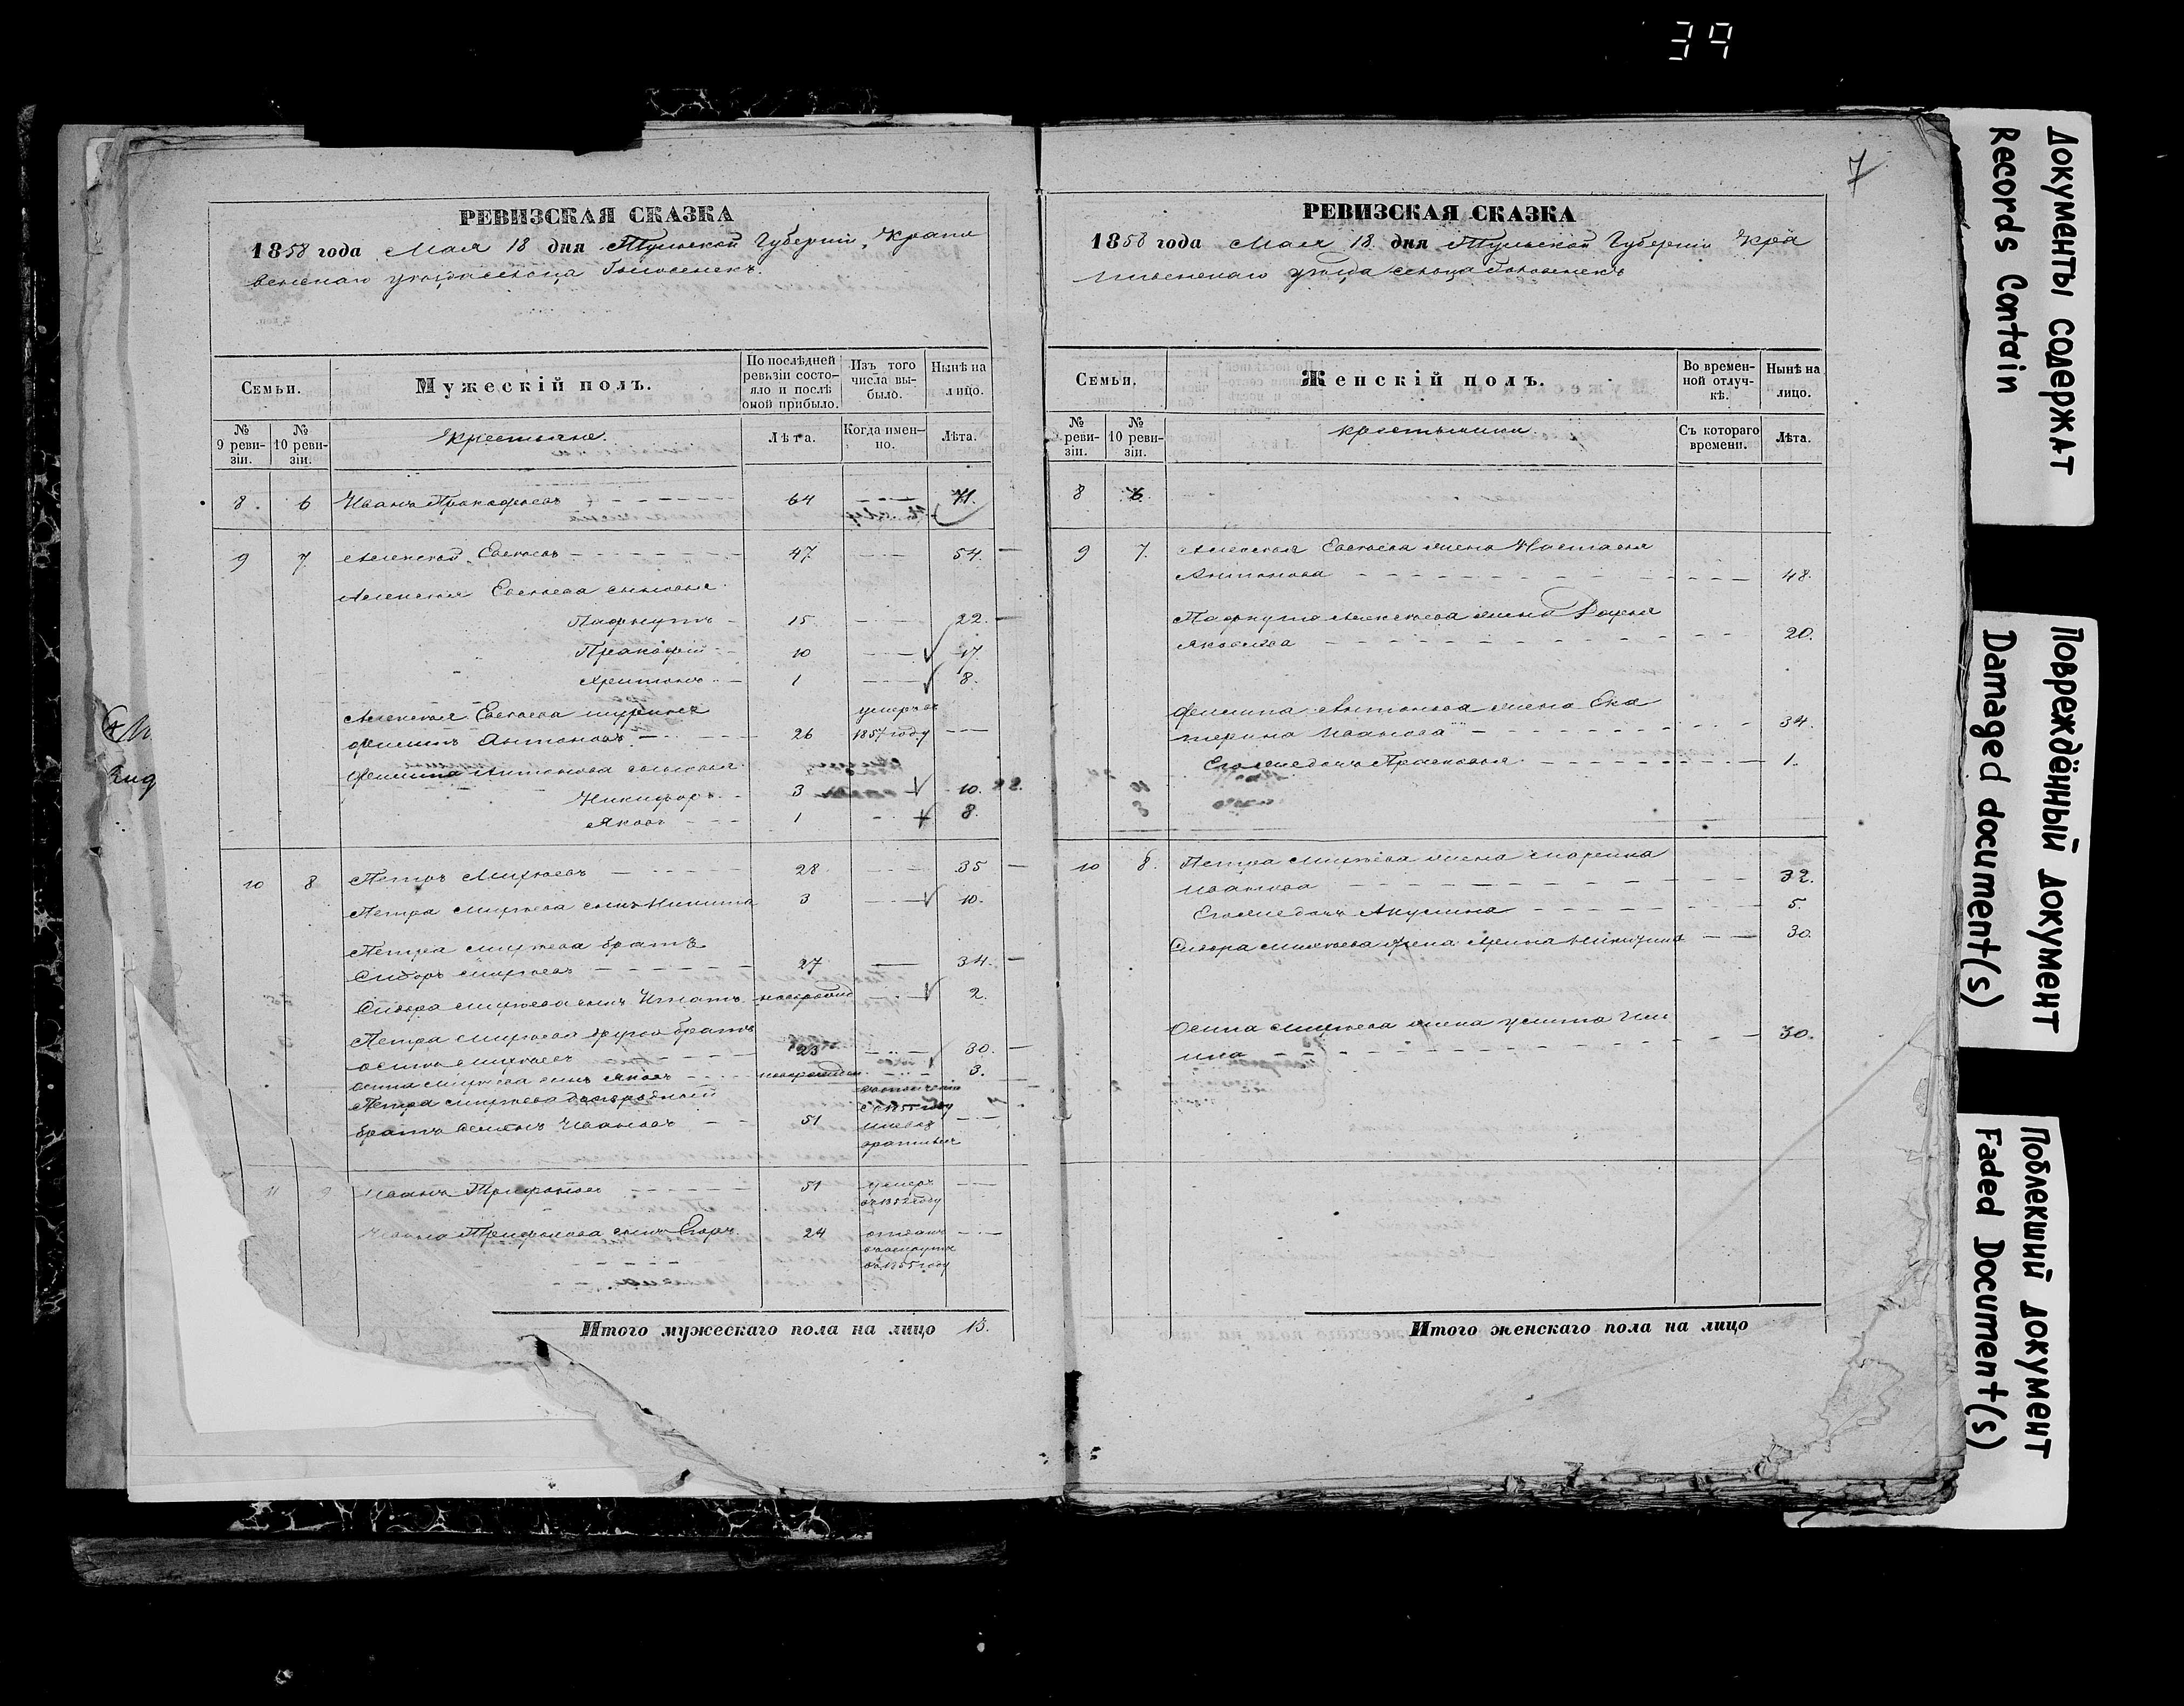 39
7
РЕВИЗСКАЯ СКАЗКА
1858 года Мая 18 дня Тульской Губернiи, Крапи
венскаго уѣзда сельца
Семьи.
Мужескiй полъ.
По послѣдней ревизiи состояло и послѣ оной прибыло.
Изъ того числа выбыло.
Нынѣ на лицо.
№ 9 ревизiи.
№ 10 ревизiи.
Крестьяне.
Лѣта.
Когда именно.
Лѣта.
8. 6 Иванъ Прокофьевъ 64 71.
9 7 Алексѣй Евсѣевъ 47 54.
Алексѣя Евсѣева сыновья
Пафнутiй 15 22.
Прокофiй 10 17.
Харитонъ 1 8.
Алексѣя Евсѣева шуринъ умеръ въ
Филипъ Антоновъ 26 1857 году
Филипа Антонова сыновья
Никифоръ 3 10.
Яковъ 1 8.
10 8 Петръ Михѣевъ 28 35
Петра Михѣева сынъ Никита 3 10.
Петра Михѣева братъ
Сидоръ Михѣевъ 27 34.
Сидора Михѣева сынъ Игнатъ новорожд 2.
Петра Михѣева другой братъ
Осипъ Михѣевъ 23 30.
Осипа Михѣева сынъ Яковъ новорожден 3.
Петра Михѣева двоюродный
братъ Семенъ Ивановъ 51
11 9 Иванъ Трифоновъ 51 умеръ
въ 1852 году
Ивана Трифонова сынъ Егоръ 24 отданъ
въ рекруты
въ 1855 году
Итого мужескаго пола на лицо 13.
РЕВИЗСКАЯ СКАЗКА
1858 года Мая 18 дня Тульской Губернiи Кра
пивенскаго уѣзда сельца
Семьи.
Женскiй полъ.
Во временной отлучкѣ.
Нынѣ на лицо.
№ ревизiи.
№ 10 ревизiи.
крестьянки
Съ котораго времени.
Лѣта.
8 6.
9 7. Алексѣя Евсѣева жена Настасья
Антонова 48.
Пафнутiя Алексѣева жена Дарья
Яковлева 20.
Филипа Антонова жена Ека
терина Иванова 34.
Его же дочь Прасковья 1.
10 8. Петра Михѣева жена Марина
Иванова 32.
Его же дочь Акулина 5.
Сидора Михѣева жена Арина Никитина 30.
Осипа Михѣева жена Улита Иль
ина 30.
Итого женскаго пола на лицо
Документы содержат
Records Contain
Повреждённый документ
Damaged document(s)
Поблекший документ
Faded Document(s)